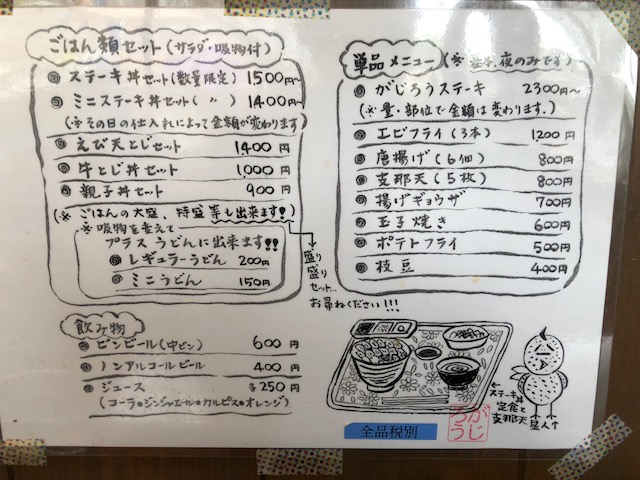 ごはん類セット(サラダ・吸物付)
ステーキ丼セット(数量限定) 1,500円〜
ミニステーキ丼セット(〃) 1400円〜
(※その日の仕入れによって金額が変わります)
えび天とじセット 1,400円
牛とじ丼セット 1,000円
親子丼セット 900円
(※ごはんの大盛、特盛等も出来ます!)
※吸物を変えて
プラスうどんに出来ます!!
レギュラーうどん 200円
ミニうどん 150円
盛り
盛り
セット…
お尋ねください!!!
飲み物
ビンビール(中ビン) 600円
ノンアルコールビール 400円
ジュース 各250円
(コーラ・ジンジャエール・カルピス・オレンジ)
単品メニュー(※基本、夜のみです)
がじろうステーキ 2300円〜
(※量・部位で金額は変わります.)
エビフライ(3本) 1200円
唐揚げ(6個) 800円
支那天(5枚) 800円
揚げギョウザ 700円
玉子焼き 600円
ポテトフライ 500円
枝豆 400円
←ステーキ丼
定食と
支那天
星人↑
がじろう
全品税別